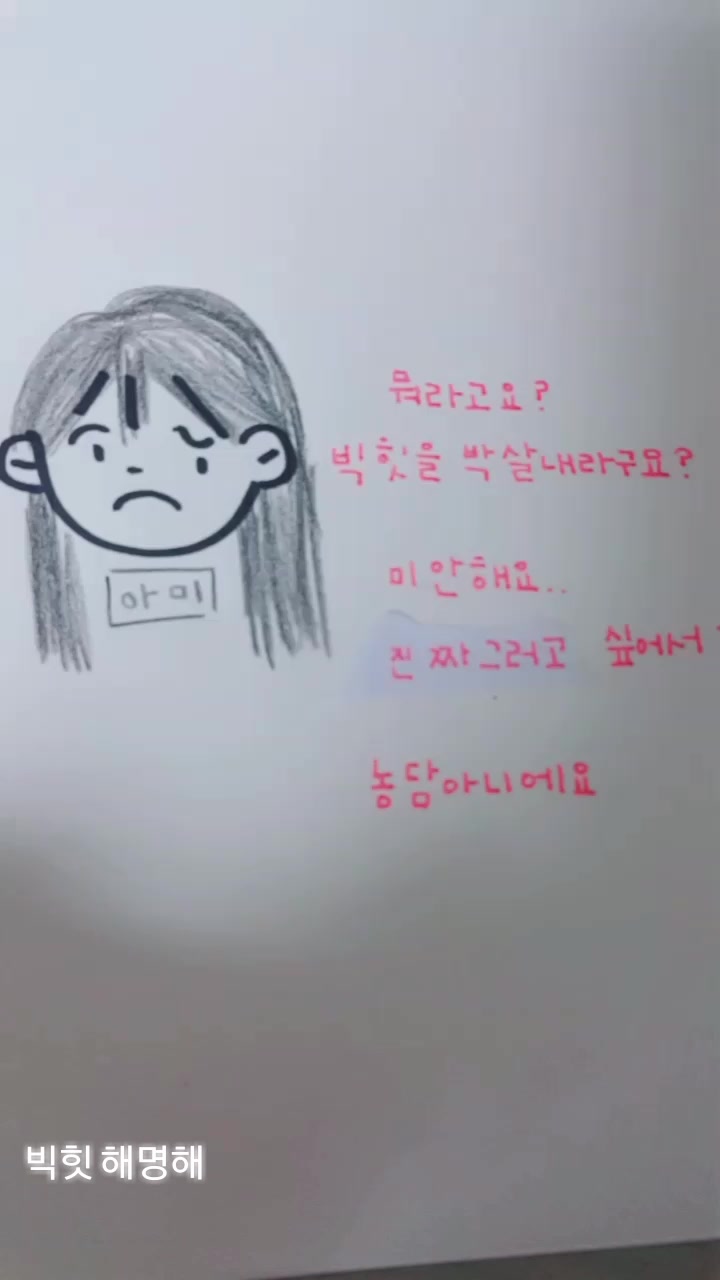 뭐라고요?
빅힛을 박살내라구요?
미안해요..
진짜그러고 싶어서
농담아니에요
아미
빅힛 해명해